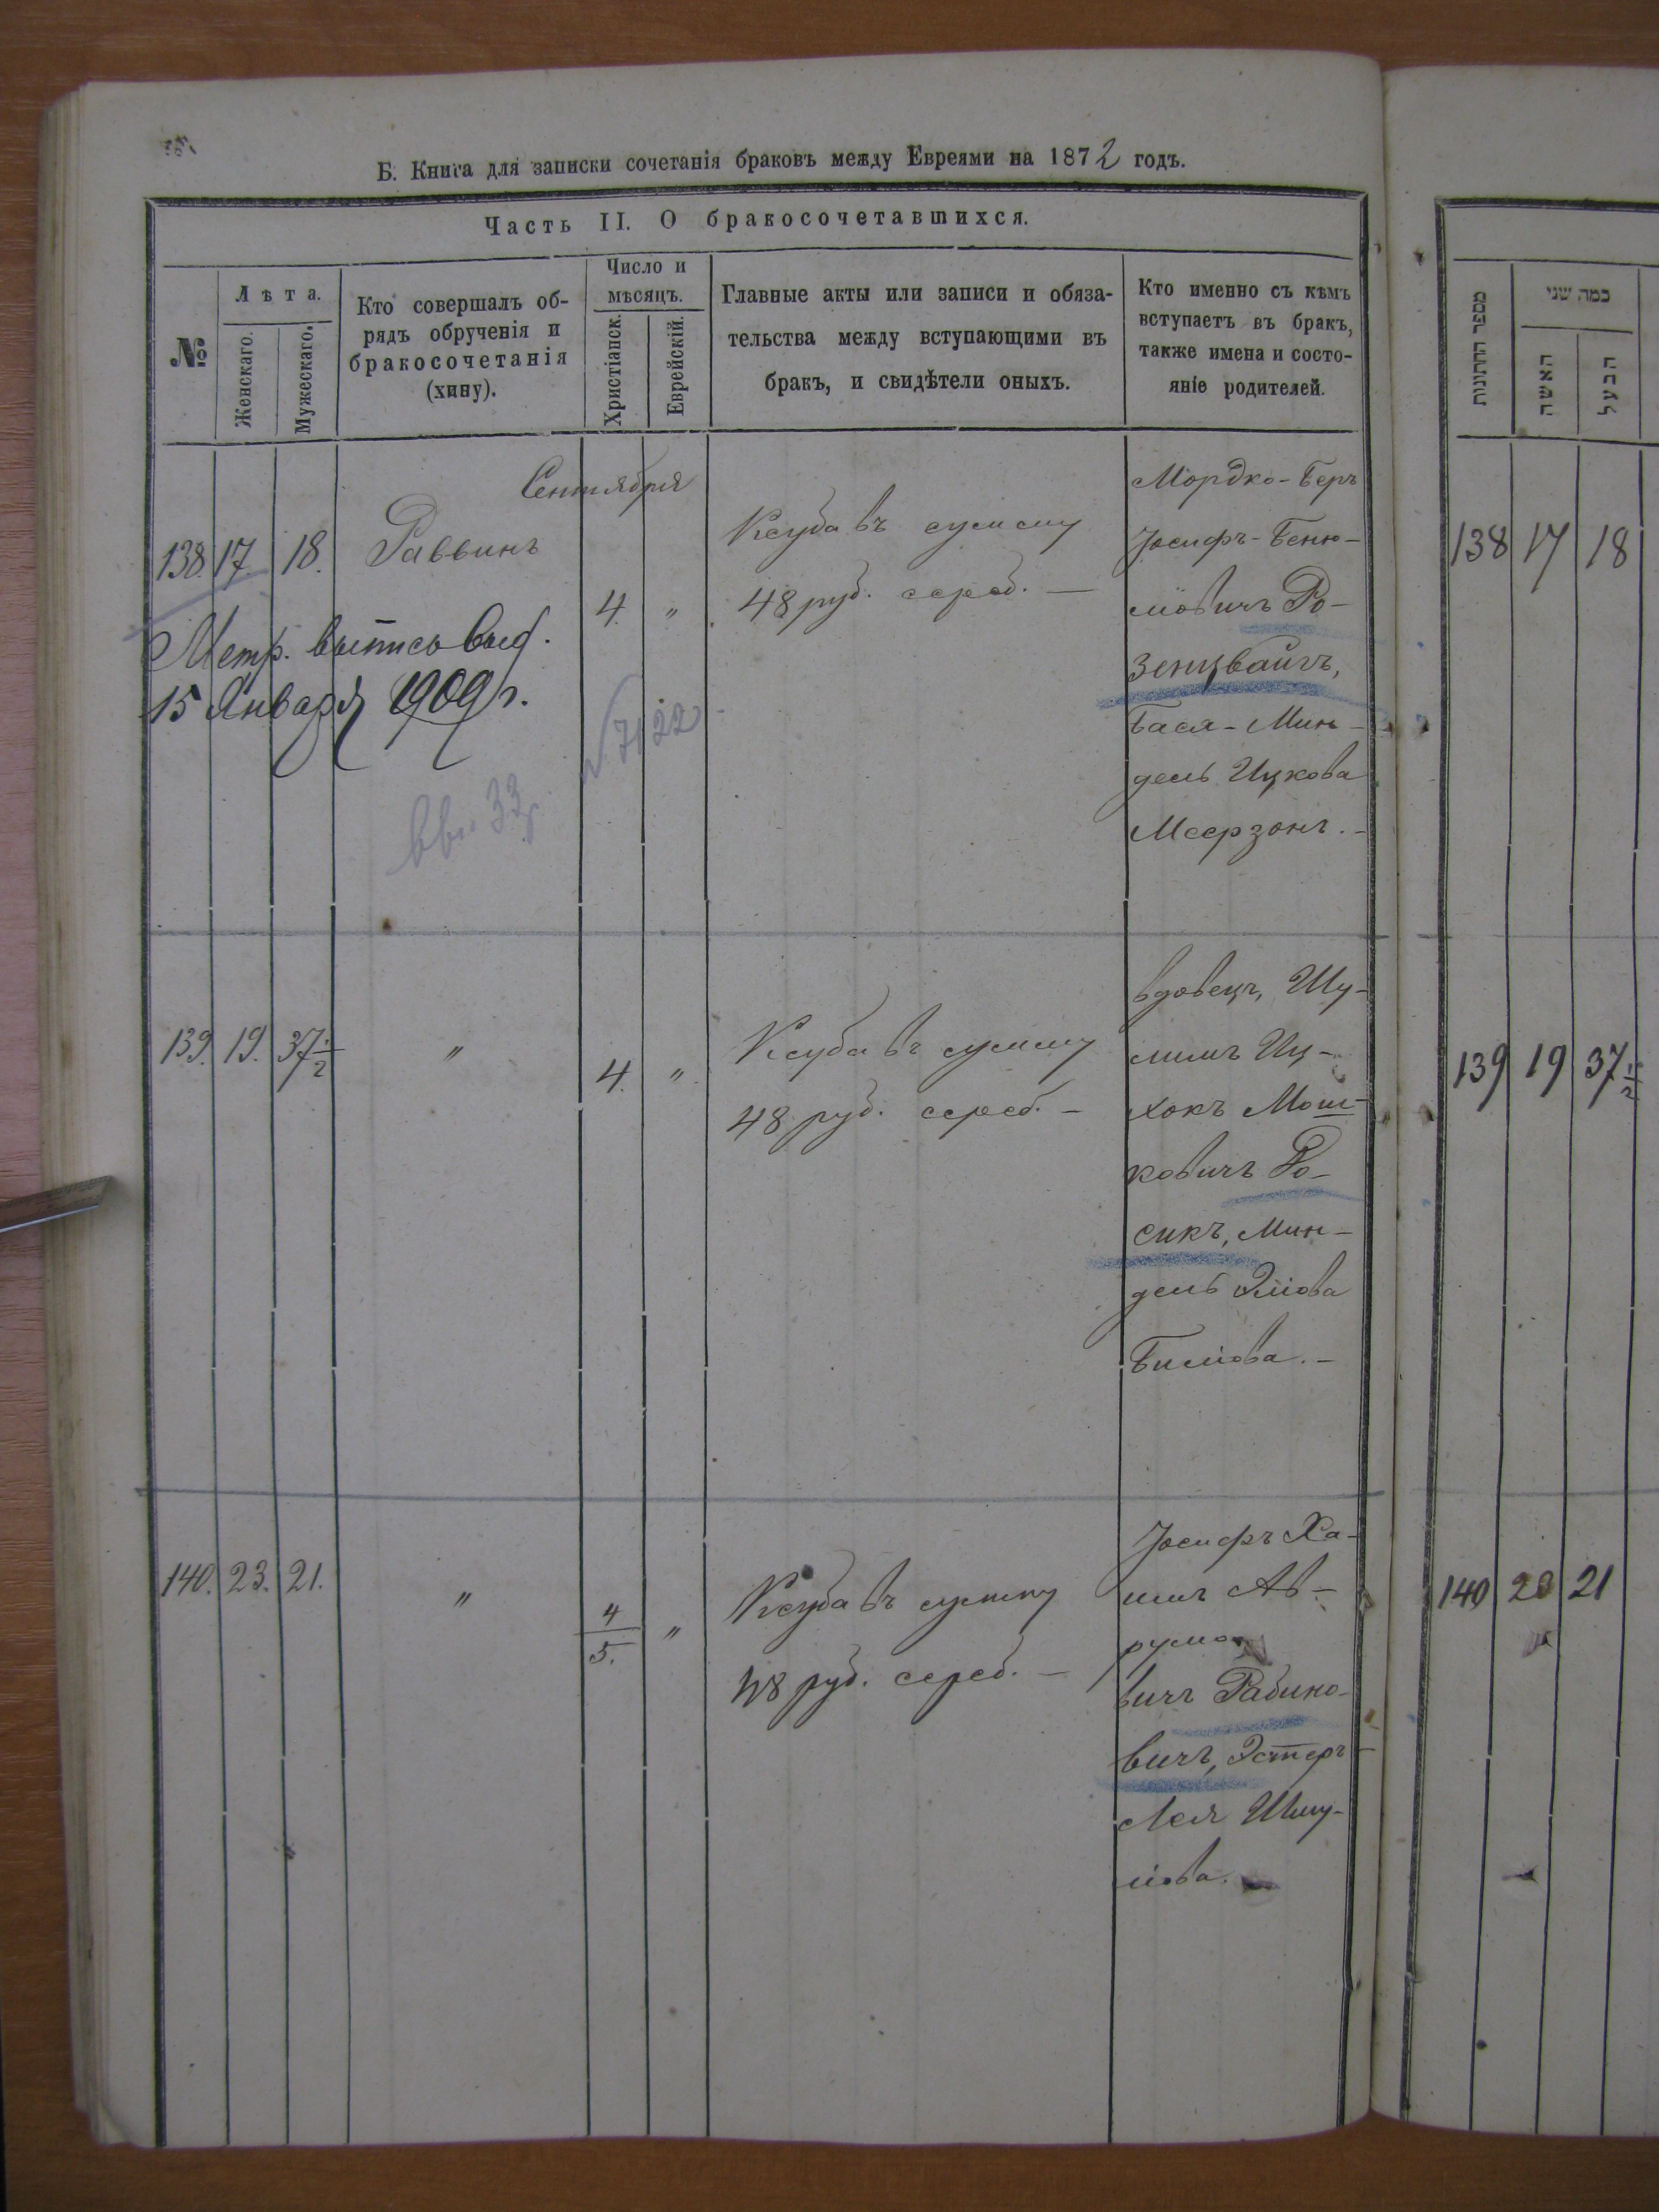 Б. Книга для записки сочетанія браковъ между Евреями на 1872 годъ.
Часть II. О бракосочетавшихся.
№
Лѣта.
Женскаго.
Мужескаго.
Кто совершалъ об-
рядъ обрученія и
бракосочетанія
(хипу).
Число и
мѣсяцъ.
Христіанск.
Еврейскій.
Главные акты или записи и обяза-
тельства между вступающими въ
бракъ, и свидѣтели оныхъ.
Кто именно съ кѣмъ
вступаетъ въ бракъ,
также имена и состо-
яніе родителей.
Сентября
138. 17. 18. Раввинъ
4. "
Ксуба въ сумму
48 руб. сереб. —
Мордко-Беръ
Іосифъ-Беню-
мовичъ Ро-
зенцвайгъ,
Бася-Мин-
дель Ицкова
Меерзонъ. -
Метр. выпись выд.
15 Января 1909 г.
№ 7122
139. 19. 37 1/2 "
4. "
Ксуба въ сумму
48 руб. сереб. -
вдовецъ, Шу-
лимъ Иц-
хокъ Мош-
ковичъ Ро-
сикъ, Мин-
дель Эліова
Билiова. -
140. 23. 21. "
4/5. "
Ксуба въ сумму
48 руб. сереб. —
Іосифъ Ха-
имъ Ав-
румо-
вичъ Рабино-
вичъ, Эстеръ
Лея Шму-
лiова.
מספר החתונות
כמה שני
האשה
הבעל
138 17 18
139 19 37 1/2
140 23 21